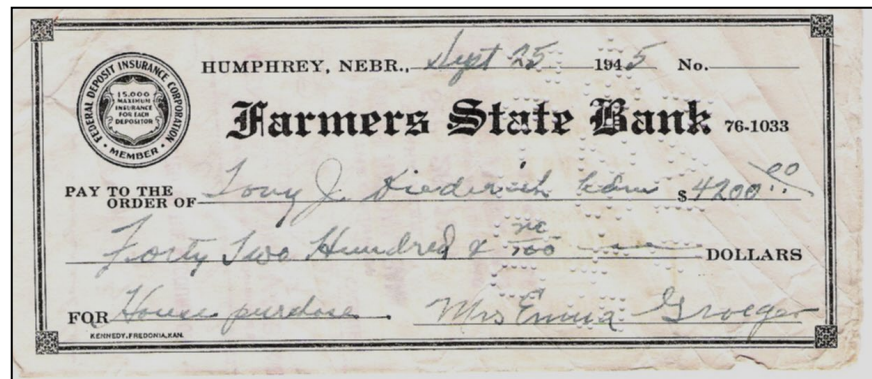 FEDERAL DEPOSIT INSURANCE CORPORATION
$5,000
MAXIMUM
INSURANCE
FOR EACH
DEPOSITOR
• MEMBER •
HUMPHREY, NEBR., Sept 25 1945 No.
Farmers State Bank 76-1033
PAY TO THE
ORDER OF Tony J. Diederich $4200.00
Forty Two Hundred & no/100 DOLLARS
FOR House purdose. Mrs Emma Groeger
KENNEDY, FREDONIA, KAN.